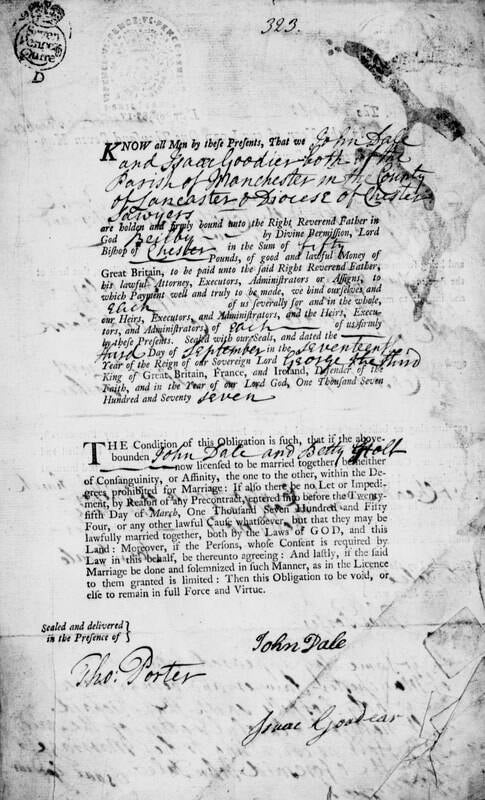 323.
Seven
Pence
Quire
D
KNOW all Men by these Presents, That we John Dale
and Isaac Goodier both of the
Parish of Manchester in the County
of Lancaster & Diocese of Chester
Sawyers
are holden and firmly bound unto the Right Reverend Father in
God Beilby by Divine Permission, Lord
Bishop of Chester in the Sum of fifty
Pounds, of good and lawful Money of
Great Britain, to be paid unto the said Right Reverend Father,
his lawful Attorney, Executors, Administrators or Assigns; to
which Payment well and truly to be made, we bind ourselves and
each of us severally for and in the whole,
our Heirs, Executors, and Administrators, and the Heirs, Execu-
tors, and Administrators, of each of us firmly
by these Presents. Sealed with our Seals, and dated the
third Day of September in the seventeenth
Year of the Reign of our Sovereign Lord George the third
King of Great Britain, France, and Ireland, Defender of the
Faith, and in the Year of our Lord God, One Thousand Seven
Hundred and Seventy seven
THE Condition of this Obligation is such, that if the above-
bounden John Dale and Betty
now licensed to be married together, be neither
of Consanguinity, or Affinity, the one to the other, within the De-
grees prohibited for Marriage: If also there be no Let or Impedi-
ment, by Reason of any Precontract, entered into before the Twenty-
fifth Day of March, One Thousand Seven Hundred and Fifty
Four, or any other lawful Cause whatsoever, but that they may be
lawfully married together, both by the Laws of GOD, and this
Land: Moreover, if the Persons, whose Consent is required by
Law in this behalf, be thereunto agreeing: And lastly, if the said
Marriage be done and solemnized in such Manner, as in the Licence
to them granted is limited: Then this Obligation to be void, or
else to remain in full Force and Virtue.
Sealed and delivered
in the Presence of
John Dale
Tho: Porter
Isaac Goodear